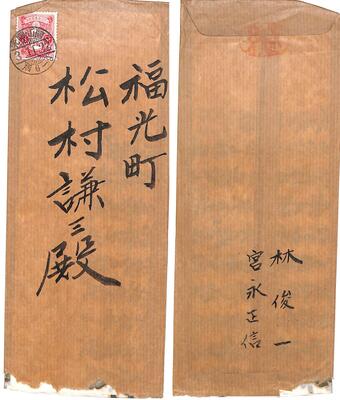 福光町
松村謙三殿
林俊一
宮永正信